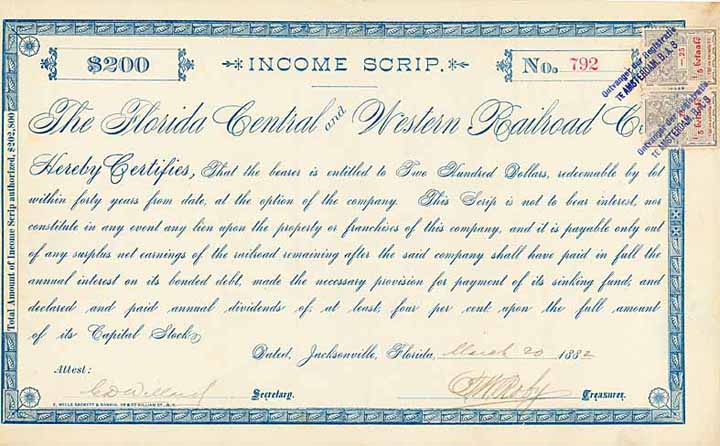 $200
INCOME SCRIP.
No. 792
The Florida Central and Western Railroad Co.
Hereby Certifies, That the bearer is entitled to Two Hundred Dollars, redeemable by lot
within forty years from date, at the option of the company. This Scrip is not to bear interest, nor
constitute in any event any lien upon the property or franchises of this company, and it is payable only out
of any surplus net earnings of the railroad remaining after the said company shall have paid in full the
annual interest on its bonded debt, made the necessary provision for payment of its sinking fund; and
declared and paid annual dividends of, at least, four per cent upon the full amount
of its Capital Stock.
Dated, Jacksonville, Florida, March 20 1882
Attest:
Secretary.
Treasurer.
Total Amount of Income Scrip authorized, $202,800
Ontvanger der Registratie
TE AMSTERDAM. B.A.S
Ontvanger der Registratie
TE AMSTERDAM. B.A.S